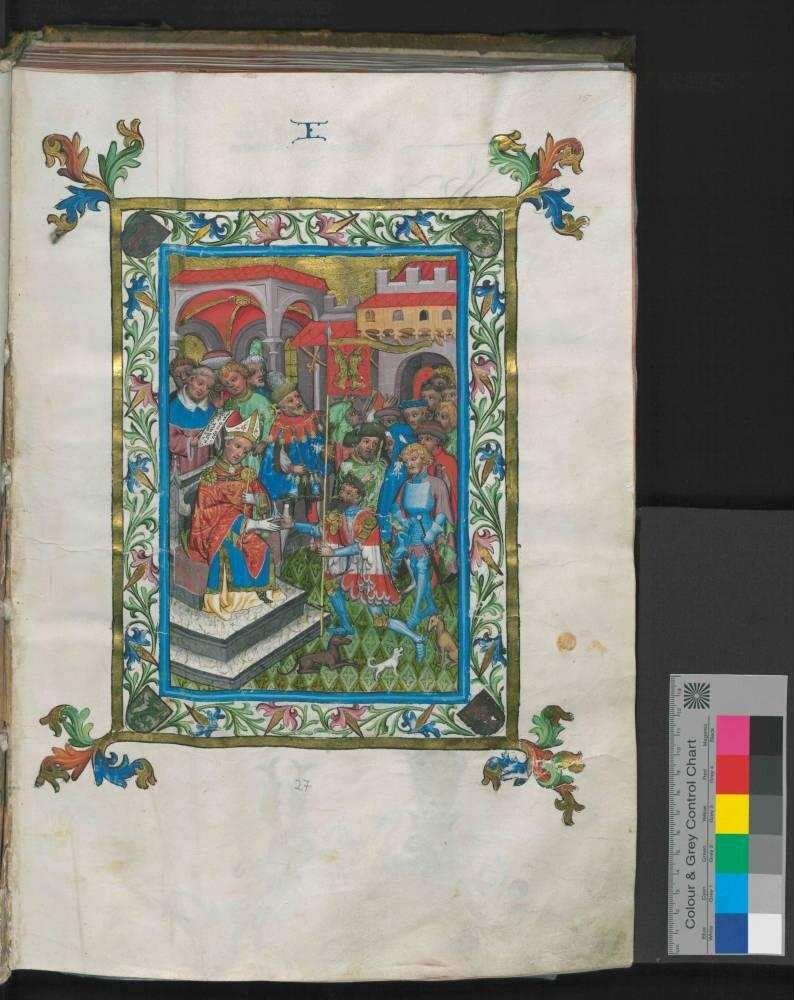 15
E
27
Colour & Grey Control Chart
Blue Cyan Green Yellow Red Magenta
White Grey 1 Grey 2 Grey 3 Grey 4 Black